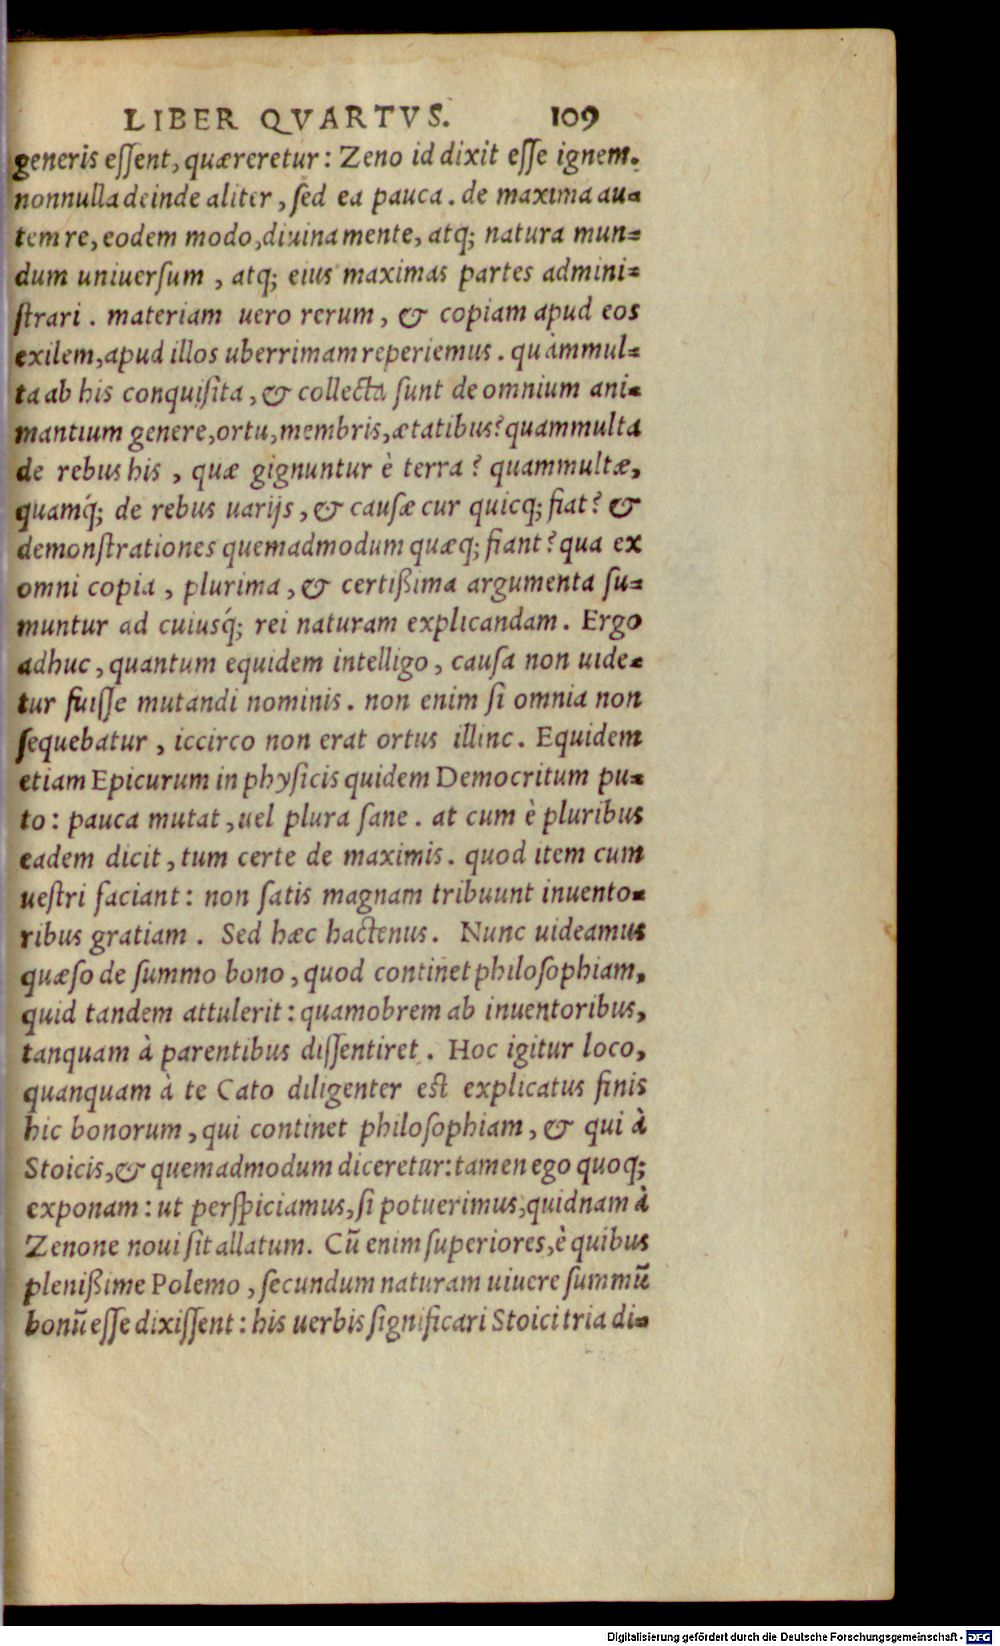 LIBER QVARTVS. 109
generis eſſent, quæreretur: Zeno id dixit eſſe ignem.
nonnulla deinde aliter, ſed ea pauca. de maxima au=
tem re, eodem modo, diuina mente, atq; natura mun=
dum uniuerſum, atq; eius maximas partes admini=
ſtrari. materiam uero rerum, & copiam apud eos
exilem, apud illos uberrimam reperiemus. quàm mul=
ta ab his conquiſita, & collecta ſunt de omnium ani=
mantium genere, ortu, membris, ætatibus? quammulta
de rebus his, quæ gignuntur è terra? quammultæ,
quamq́; de rebus uarijs, & cauſæ cur quicq; fiat? &
demonſtrationes quemadmodum quæq; fiant? qua ex
omni copia, plurima, & certißima argumenta ſu=
muntur ad cuiusq́; rei naturam explicandam. Ergo
adhuc, quantum equidem intelligo, cauſa non uide=
tur fuiſſe mutandi nominis. non enim ſi omnia non
ſequebatur, iccirco non erat ortus illinc. Equidem
etiam Epicurum in phyſicis quidem Democritum pu=
to: pauca mutat, uel plura ſane. at cum è pluribus
eadem dicit, tum certe de maximis. quod item cum
ueſtri faciant: non ſatis magnam tribuunt inuento=
ribus gratiam. Sed hæc hactenus. Nunc uideamus
quæſo de ſummo bono, quod continet philoſophiam,
quid tandem attulerit: quamobrem ab inuentoribus,
tanquam à parentibus diſſentiret. Hoc igitur loco,
quanquam à te Cato diligenter eſt explicatus finis
hic bonorum, qui continet philoſophiam, & qui à
Stoicis, & quemadmodum diceretur: tamen ego quoq;
exponam: ut perſpiciamus, ſi potuerimus, quidnam à
Zenone noui ſit allatum. Cū enim ſuperiores, è quibus
plenißime Polemo, ſecundum naturam uiuere ſummū
bonū eſſe dixiſſent: his uerbis ſignificari Stoici tria di=
Digitalisierung gefördert durch die Deutsche Forschungsgemeinschaft - DFG